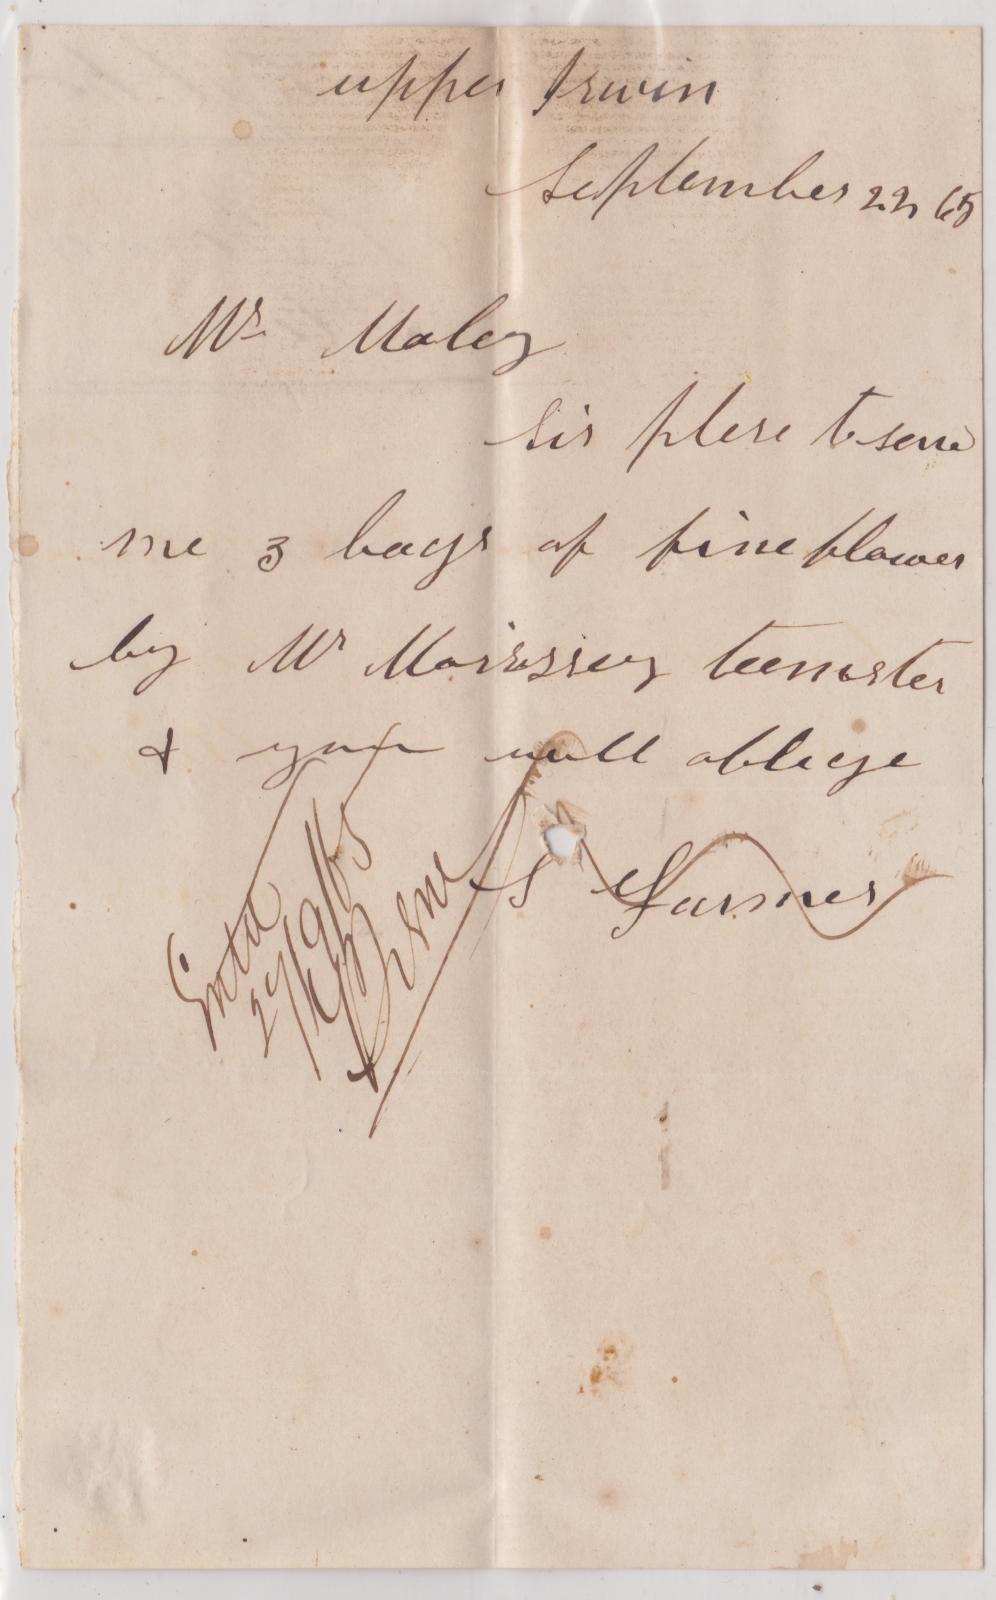 upper Irwin
September 22 65
Mr Maley
Sir plese to sene
me 3 bags of fine flower
by Mr Morissey teemster
& you will oblege
S Farmer
Entd
29/9/65